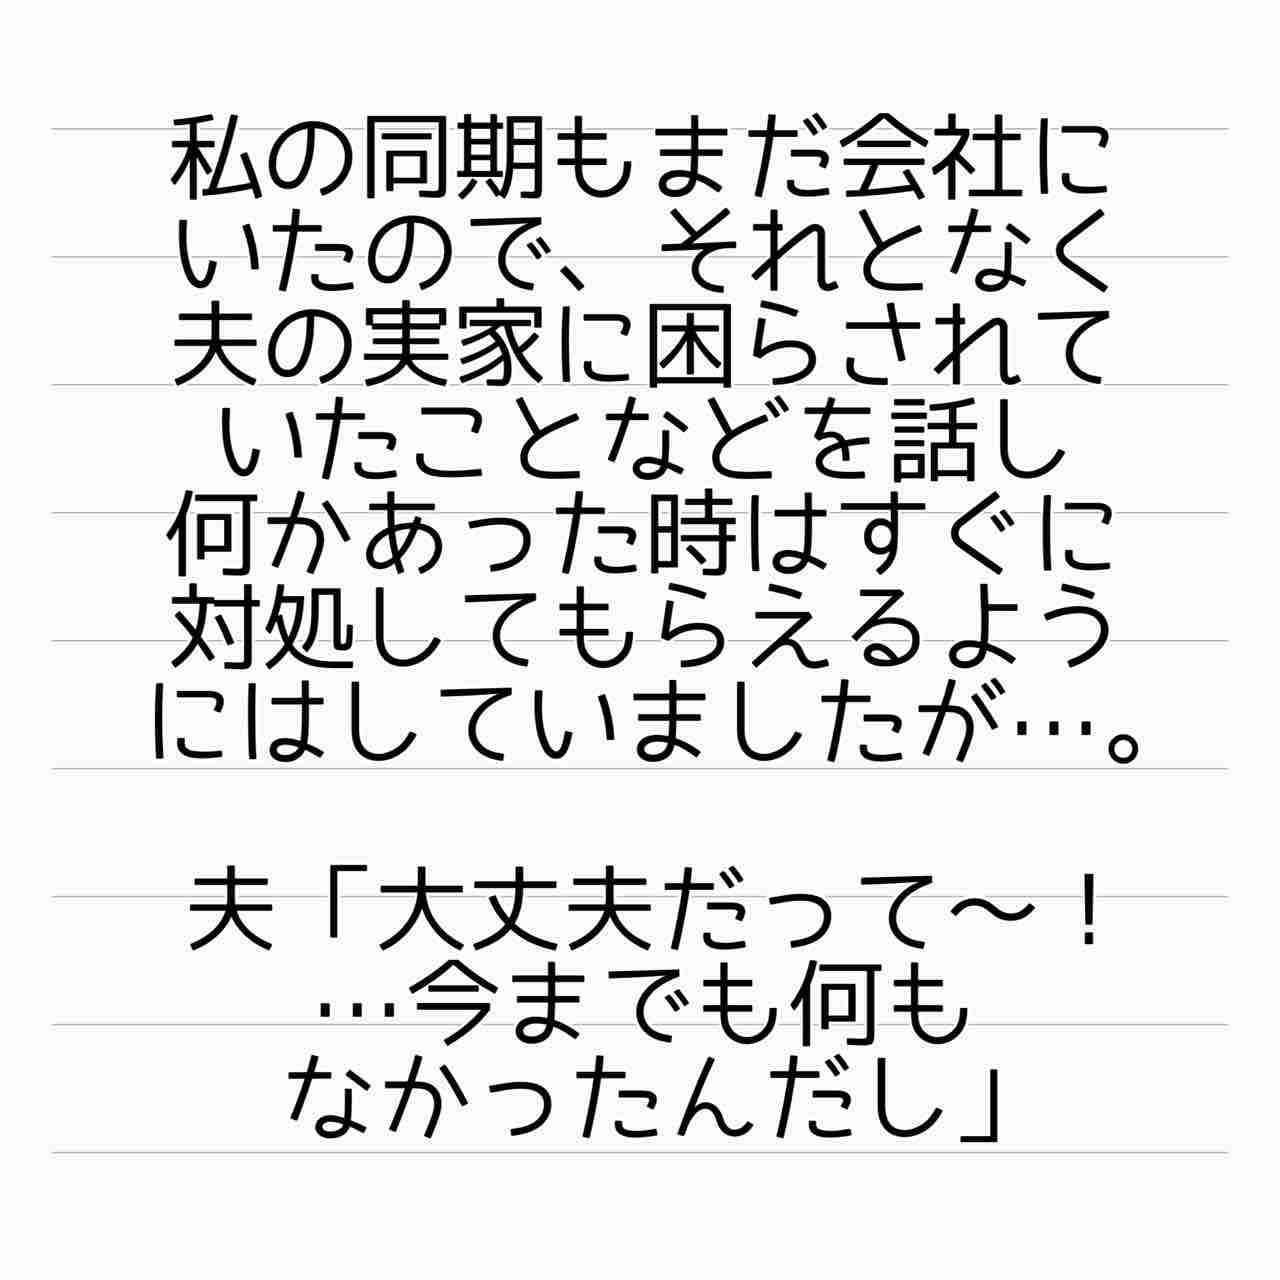 私の同期もまだ会社に
いたので、それとなく
夫の実家に困らされて
いたことなどを話し
何かあった時はすぐに
対処してもらえるよう
にはしていましたが…。
夫「大丈夫だって〜！
…今までも何も
なかったんだし」